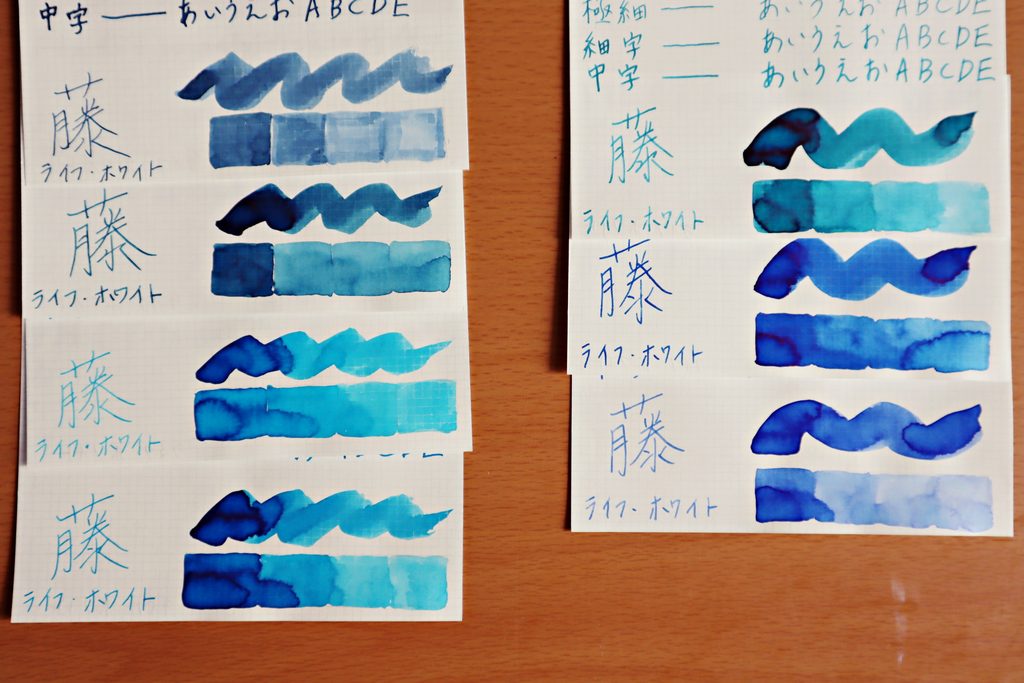 中字 — あいうえおABCDE
藤
ライフ・ホワイト
藤
ライフ・ホワイト
藤
ライフ・ホワイト
藤
ライフ・ホワイト
極細 — あいうえおABCDE
細字 — あいうえおABCDE
中字 — あいうえおABCDE
藤
ライフ・ホワイト
藤
ライフ・ホワイト
藤
ライフ・ホワイト